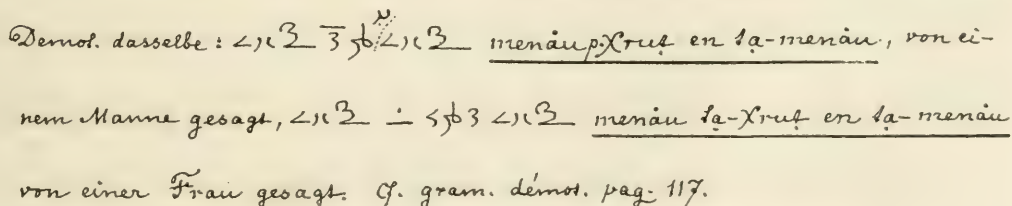 Demot. dasselbe: menȧu p.χruṭ en ṭa-menȧu, von ei-
nem Manne gesagt, menȧu ṭa-χruṭ en ṭa-menȧu
von einer Frau gesagt. Cf. gram. démot. pag. 117.